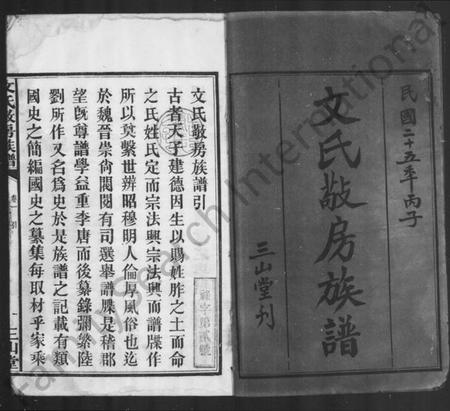 民國二十五年丙子
文氏敬房族譜
三山堂刊
文氏敬房族譜引
古者天子建德因生以賜姓胙之土而命
之氏姓氏定而宗法興宗法興而譜牒作
所以奠繫世辨昭穆明人倫厚風俗也迄
於魏晉崇尚閥閱有司選舉譜牒是稽郡
望旣尊譜學益重李唐而後纂錄彌繁陸
劉所作又名為史於是族譜之記載有類
國史之簡編國史之纂集每取材乎家乘
文氏敬房族譜
三山堂
FamilySearch International